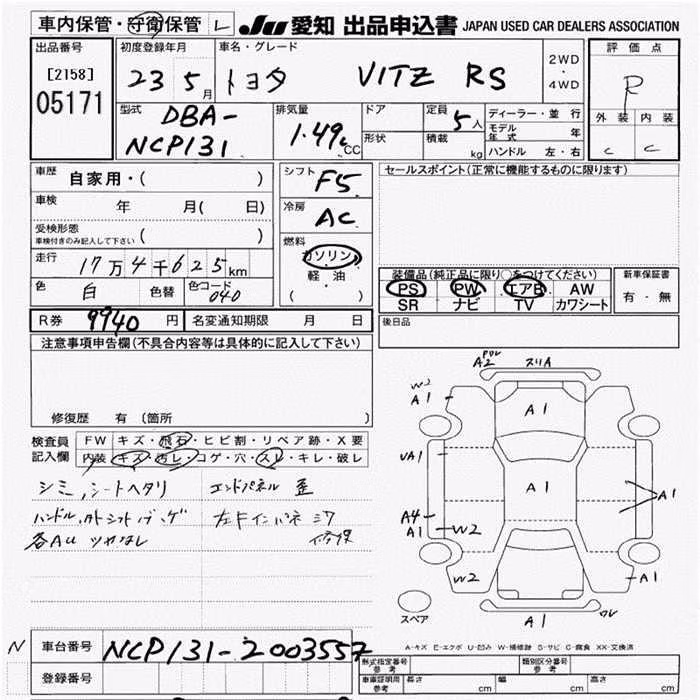 車内保管・守衛保管 L JU 愛知 出品申込書 JAPAN USED CAR DEALERS ASSOCIATION
出品番号 初度登録年月 車名・グレード 2WD・4WD 評価点
[2158] 05171 23 5月 トヨタ VITZ RS R
型式 DBA-NCP131 排気量 1.49L CC ドア 定員 5人 ディーラー・並行 外装 内装
形状 積載 kg モデル年式 年 C C
ハンドル 左・右
車歴 自家用・( ) シフト F5 セールスポイント(正常に機能するものに限ります)
車検 年 月( 日) 冷房 AC
受検形態 車検付きのみ記入して下さい ( ) 燃料 ガソリン
走行 17万4千625km 軽・油 装備品(純正品に限り○をつけてください) 新車保証書
色 白 色替 色コード 040 ( ) PS PW エアB AW 有・無
SR ナビ TV カワシート
R券 9940円 名変通知期限 月 日 後日品
注意事項申告欄(不具合内容等は具体的に記入して下さい)
修復歴 有 (箇所
検査員記入欄 FW キズ・飛石・ヒビ割・リペア跡・X要
内装 キズ・汚レ・コゲ・穴・スレ・キレ・破レ
シミ,シートヘタリ エンドパネル 歪
各AU ツヤなし 修復
A2 スリA
W2
A1 A1
UA1 A1 A1
A4
A1 W2
W2 A1
スペア A1 ワレ
A-キズ E-エクボ U-凹み W-補修跡 S-サビ C-腐食 XX-交換済
N 車台番号 NCP131-2003557
登録番号
型式指定番号 参考 類別区分番号 参考
車庫証明用 参考 長さ cm 幅 cm 高さ cm